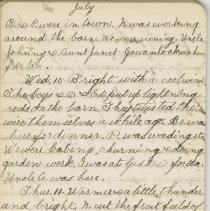 July
B. & P. were in town. N. was working
around the barn. We were ironing. Uncle
Johnny & Aunt Janet Gowanlock were here
for tea.
Wed. 10 - Bright with a cool wind.
The boys & put up lightning
rods on the barn. They twisted the
wire themselves a while ago. was
here for dinner. P. was weeding etc.
We were baking, churning & doing
garden work. I was at for a
Uncle A. was here.
Thurs. 11 - Warmer & a little thunder
and bright. N. cut the front field of